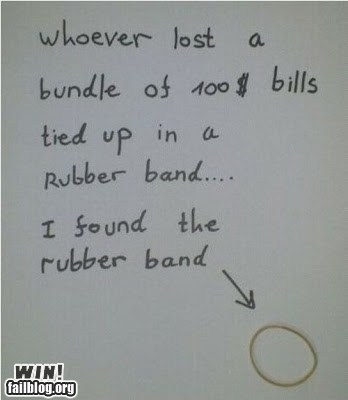 whoever lost a
bundle of 100$ bills
tied up in a
Rubber band....
I found the
rubber band
WIN!
failblog.org